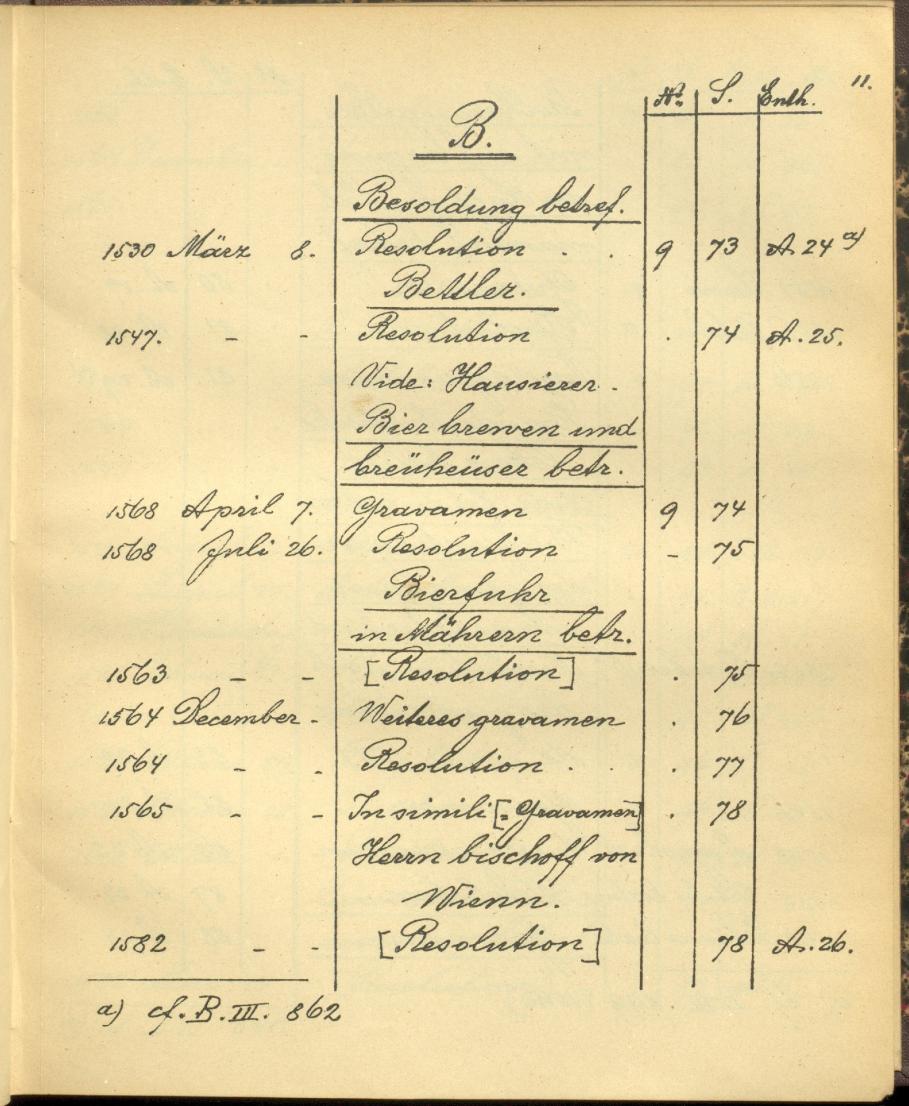 11.
No. S. Enth.
B.
Besoldung betref.
1530 März 8. Resolution . . 9 73 A. 24 a)
Bettler.
1547. - - Resolution . 74 A. 25.
Vide: Hausierer.
Bier brewen und
breüheüser betr.
1568 April 7. Gravamen 9 74
1568 Juli 26. Resolution - 75
Bierfuhr
in Mährern betr.
1563 - - [Resolution] . 75
1564 December - Weiteres gravamen . 76
1564 - - Resolution . . . 77
1565 - - In simili [= Gravamen] . 78
Herrn bischoff von
Wienn.
1582 - - [Resolution] 78 A. 26.
a) cf. B. III. 862